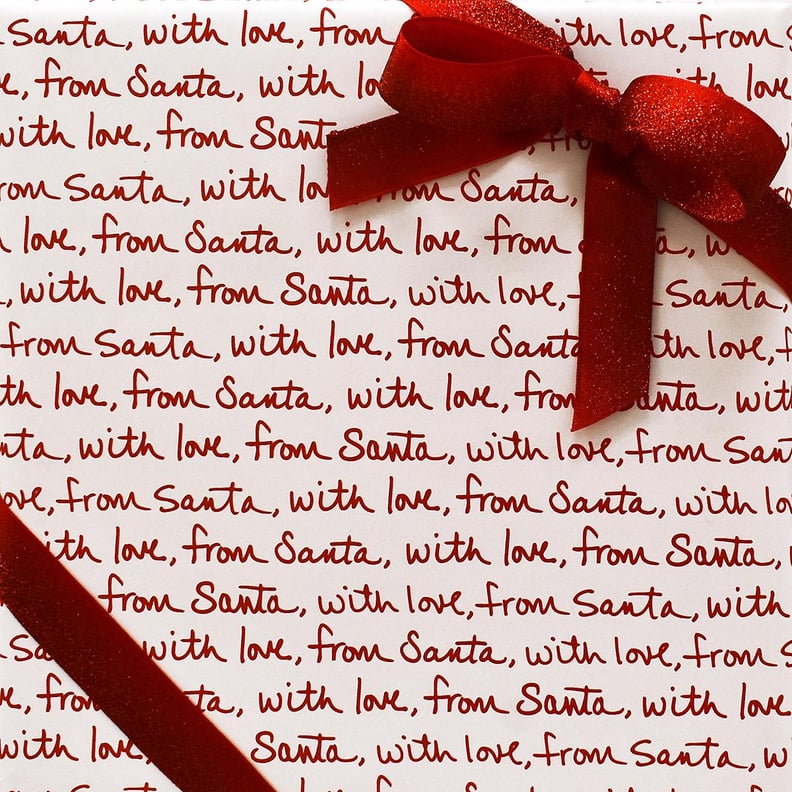 Santa, with love, from with love, from
from Santa, with love
with love, from Santa
Santa, with from Santa,
love, from Santa, with love, from
, with love, from Santa, with love, Santa,
from Santa, with love, from Santa love,
love, from Santa, with love, from Santa, with
, with love, from Santa, with love, from Santa
from Santa, with love, from Santa, with
with love, from Santa, with love, from Santa,
from Santa, with love, from Santa, with
with love, from Santa, with love, from
from with love, from Santa, with love
with love, Santa, with love, from Santa,